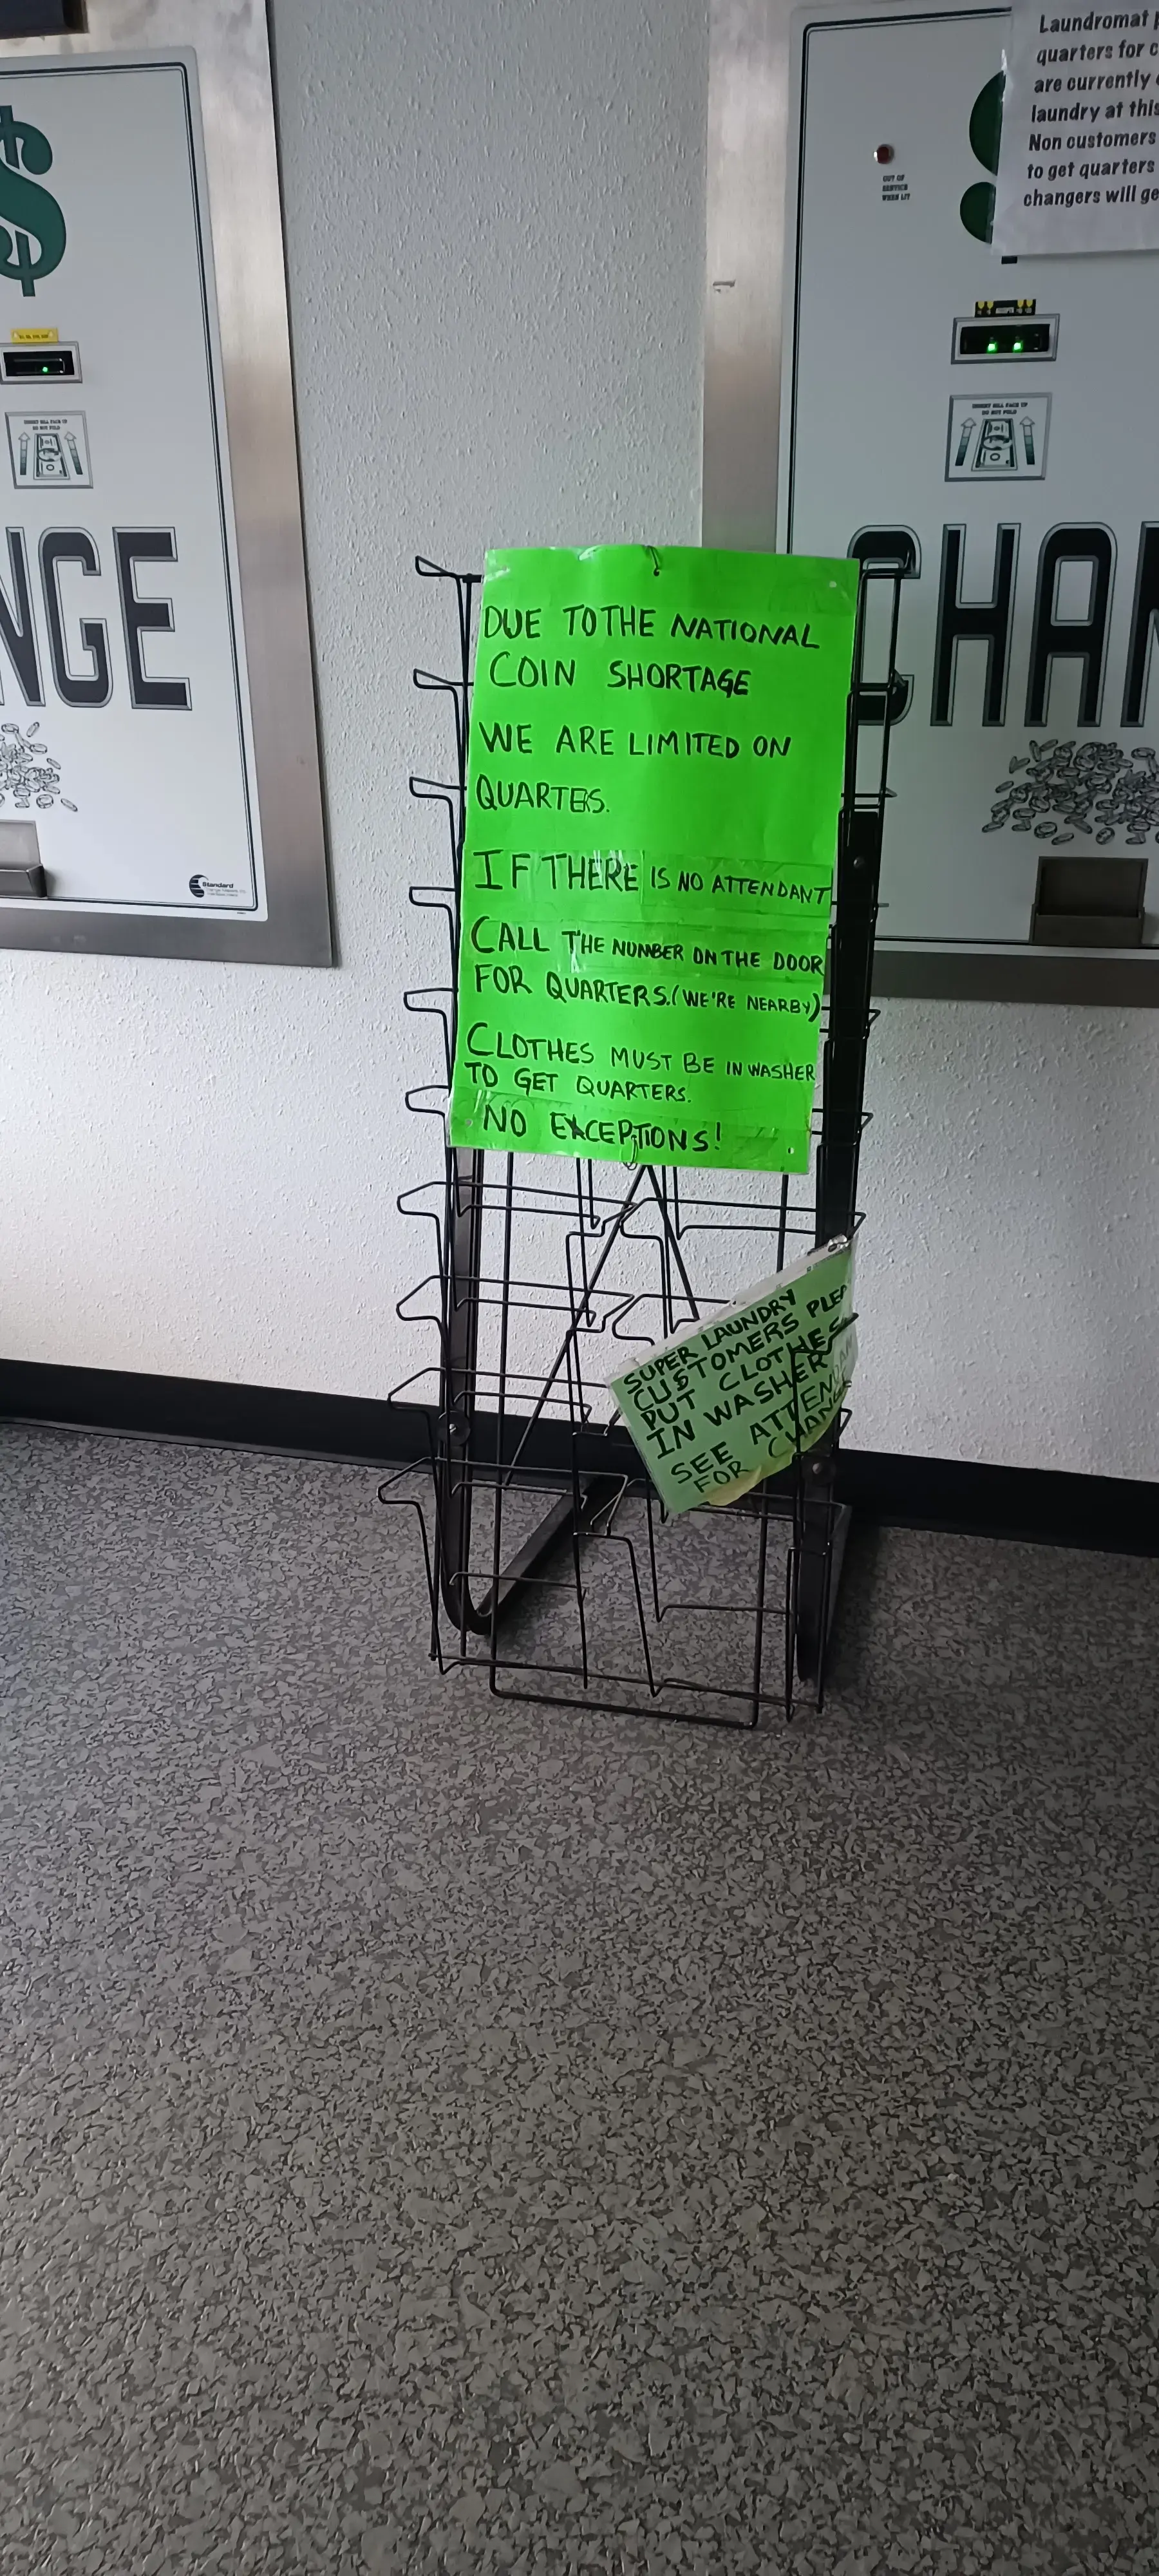 Laundromat
quarters for
are currently
laundry at this
Non customers
to get quarters
changers will
OUT OF
SERVICE
WHEN LIT
INSERT BILL FACE UP
DO NOT FOLD
INSERT BILL FACE UP
DO NOT FOLD
NGE
CHAN
Standard
DUE TO THE NATIONAL
COIN SHORTAGE
WE ARE LIMITED ON
QUARTERS.
IF THERE IS NO ATTENDANT
CALL THE NUMBER ON THE DOOR
FOR QUARTERS. (WE'RE NEARBY)
CLOTHES MUST BE IN WASHER
TO GET QUARTERS.
NO EXCEPTIONS!
SUPER LAUNDRY
CUSTOMERS PLEA
PUT CLOTHES
IN WASHER
SEE ATTENDAN
FOR CHANGE